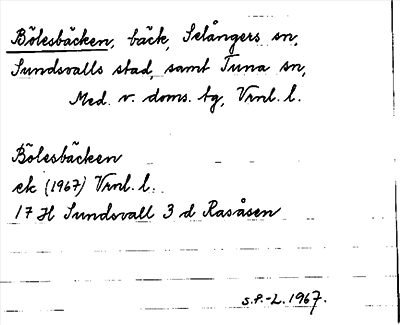 Bölesbäcken, bäck, Selångers sn,
Sundsvalls stad, samt Tuna sn,
Med. v. doms. tg, Vrnl. l.
Bölesbäcken
ek (1967) Vrnl. l.
17 H Sundsvall 3 d Rasåsen
S.P.-L. 1967.